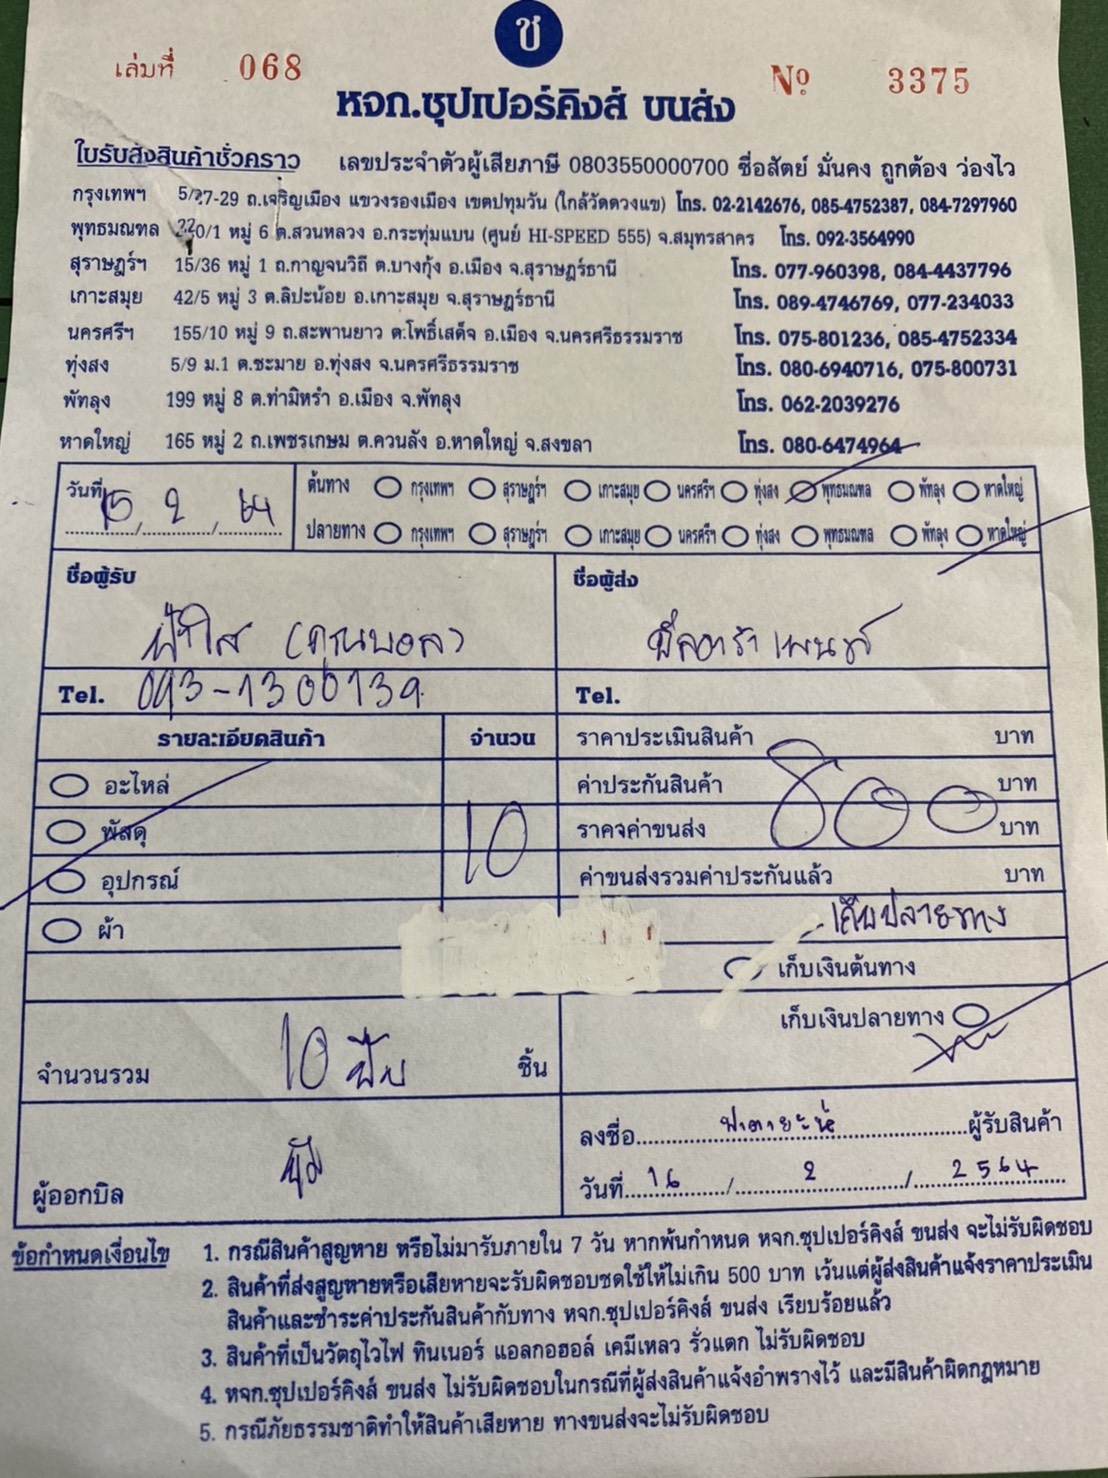 ช
เล่มที่ 068 Nº 3375
หจก.ซุปเปอร์คิงส์ ขนส่ง
ใบรับส่งสินค้าชั่วคราว เลขประจำตัวผู้เสียภาษี 0803550000700 ซื่อสัตย์ มั่นคง ถูกต้อง ว่องไว
กรุงเทพฯ 5/27-29 ถ.เจริญเมือง แขวงรองเมือง เขตปทุมวัน (ใกล้วัดดวงแข) โทร. 02-2142676, 085-4752387, 084-7297960
พุทธมณฑล 220/1 หมู่ 6 ต.สวนหลวง อ.กระทุ่มแบน (ศูนย์ HI-SPEED 555) จ.สมุทรสาคร โทร. 092-3564990
สุราษฎร์ฯ 15/36 หมู่ 1 ถ.กาญจนวิถี ต.บางกุ้ง อ.เมือง จ.สุราษฎร์ธานี โทร. 077-960398, 084-4437796
เกาะสมุย 42/5 หมู่ 3 ต.ลิปะน้อย อ.เกาะสมุย จ.สุราษฎร์ธานี โทร. 089-4746769, 077-234033
นครศรีฯ 155/10 หมู่ 9 ถ.สะพานยาว ต.โพธิ์เสด็จ อ.เมือง จ.นครศรีธรรมราช โทร. 075-801236, 085-4752334
ทุ่งสง 5/9 ม.1 ต.ชะมาย อ.ทุ่งสง จ.นครศรีธรรมราช โทร. 080-6940716, 075-800731
พัทลุง 199 หมู่ 8 ต.ท่ามิหรำ อ.เมือง จ.พัทลุง โทร. 062-2039276
หาดใหญ่ 165 หมู่ 2 ถ.เพชรเกษม ต.ควนลัง อ.หาดใหญ่ จ.สงขลา โทร. 080-6474964
วันที่ 15 / 2 / 64 ต้นทาง กรุงเทพฯ สุราษฎร์ฯ เกาะสมุย นครศรีฯ ทุ่งสง พุทธมณฑล พัทลุง หาดใหญ่
ปลายทาง กรุงเทพฯ สุราษฎร์ฯ เกาะสมุย นครศรีฯ ทุ่งสง พุทธมณฑล พัทลุง หาดใหญ่
ชื่อผู้รับ ชื่อผู้ส่ง
ฟ้าใส (คุณบอล)
Tel. 093-1300139 Tel.
รายละเอียดสินค้า จำนวน ราคาประเมินสินค้า บาท
อะไหล่ ค่าประกันสินค้า บาท
พัสดุ 10 ราคจค่าขนส่ง 800 บาท
อุปกรณ์ ค่าขนส่งรวมค่าประกันแล้ว บาท
ผ้า เก็บปลายทาง
เก็บเงินต้นทาง
เก็บเงินปลายทาง
จำนวนรวม 10 ชิ้น
ลงชื่อ ผู้รับสินค้า
ผู้ออกบิล วันที่ 16 / 2 / 2564
ข้อกำหนดเงื่อนไข 1. กรณีสินค้าสูญหาย หรือไม่มารับภายใน 7 วัน หากพ้นกำหนด หจก.ซุปเปอร์คิงส์ ขนส่ง จะไม่รับผิดชอบ
2. สินค้าที่ส่งสูญหายหรือเสียหายจะรับผิดชอบชดใช้ให้ไม่เกิน 500 บาท เว้นแต่ผู้ส่งสินค้าแจ้งราคาประเมิน
สินค้าและชำระค่าประกันสินค้ากับทาง หจก.ซุปเปอร์คิงส์ ขนส่ง เรียบร้อยแล้ว
3. สินค้าที่เป็นวัตถุไวไฟ ทินเนอร์ แอลกอฮอล์ เคมีเหลว รั่วแตก ไม่รับผิดชอบ
4. หจก.ซุปเปอร์คิงส์ ขนส่ง ไม่รับผิดชอบในกรณีที่ผู้ส่งสินค้าแจ้งอำพรางไว้ และมีสินค้าผิดกฎหมาย
5. กรณีภัยธรรมชาติทำให้สินค้าเสียหาย ทางขนส่งจะไม่รับผิดชอบ